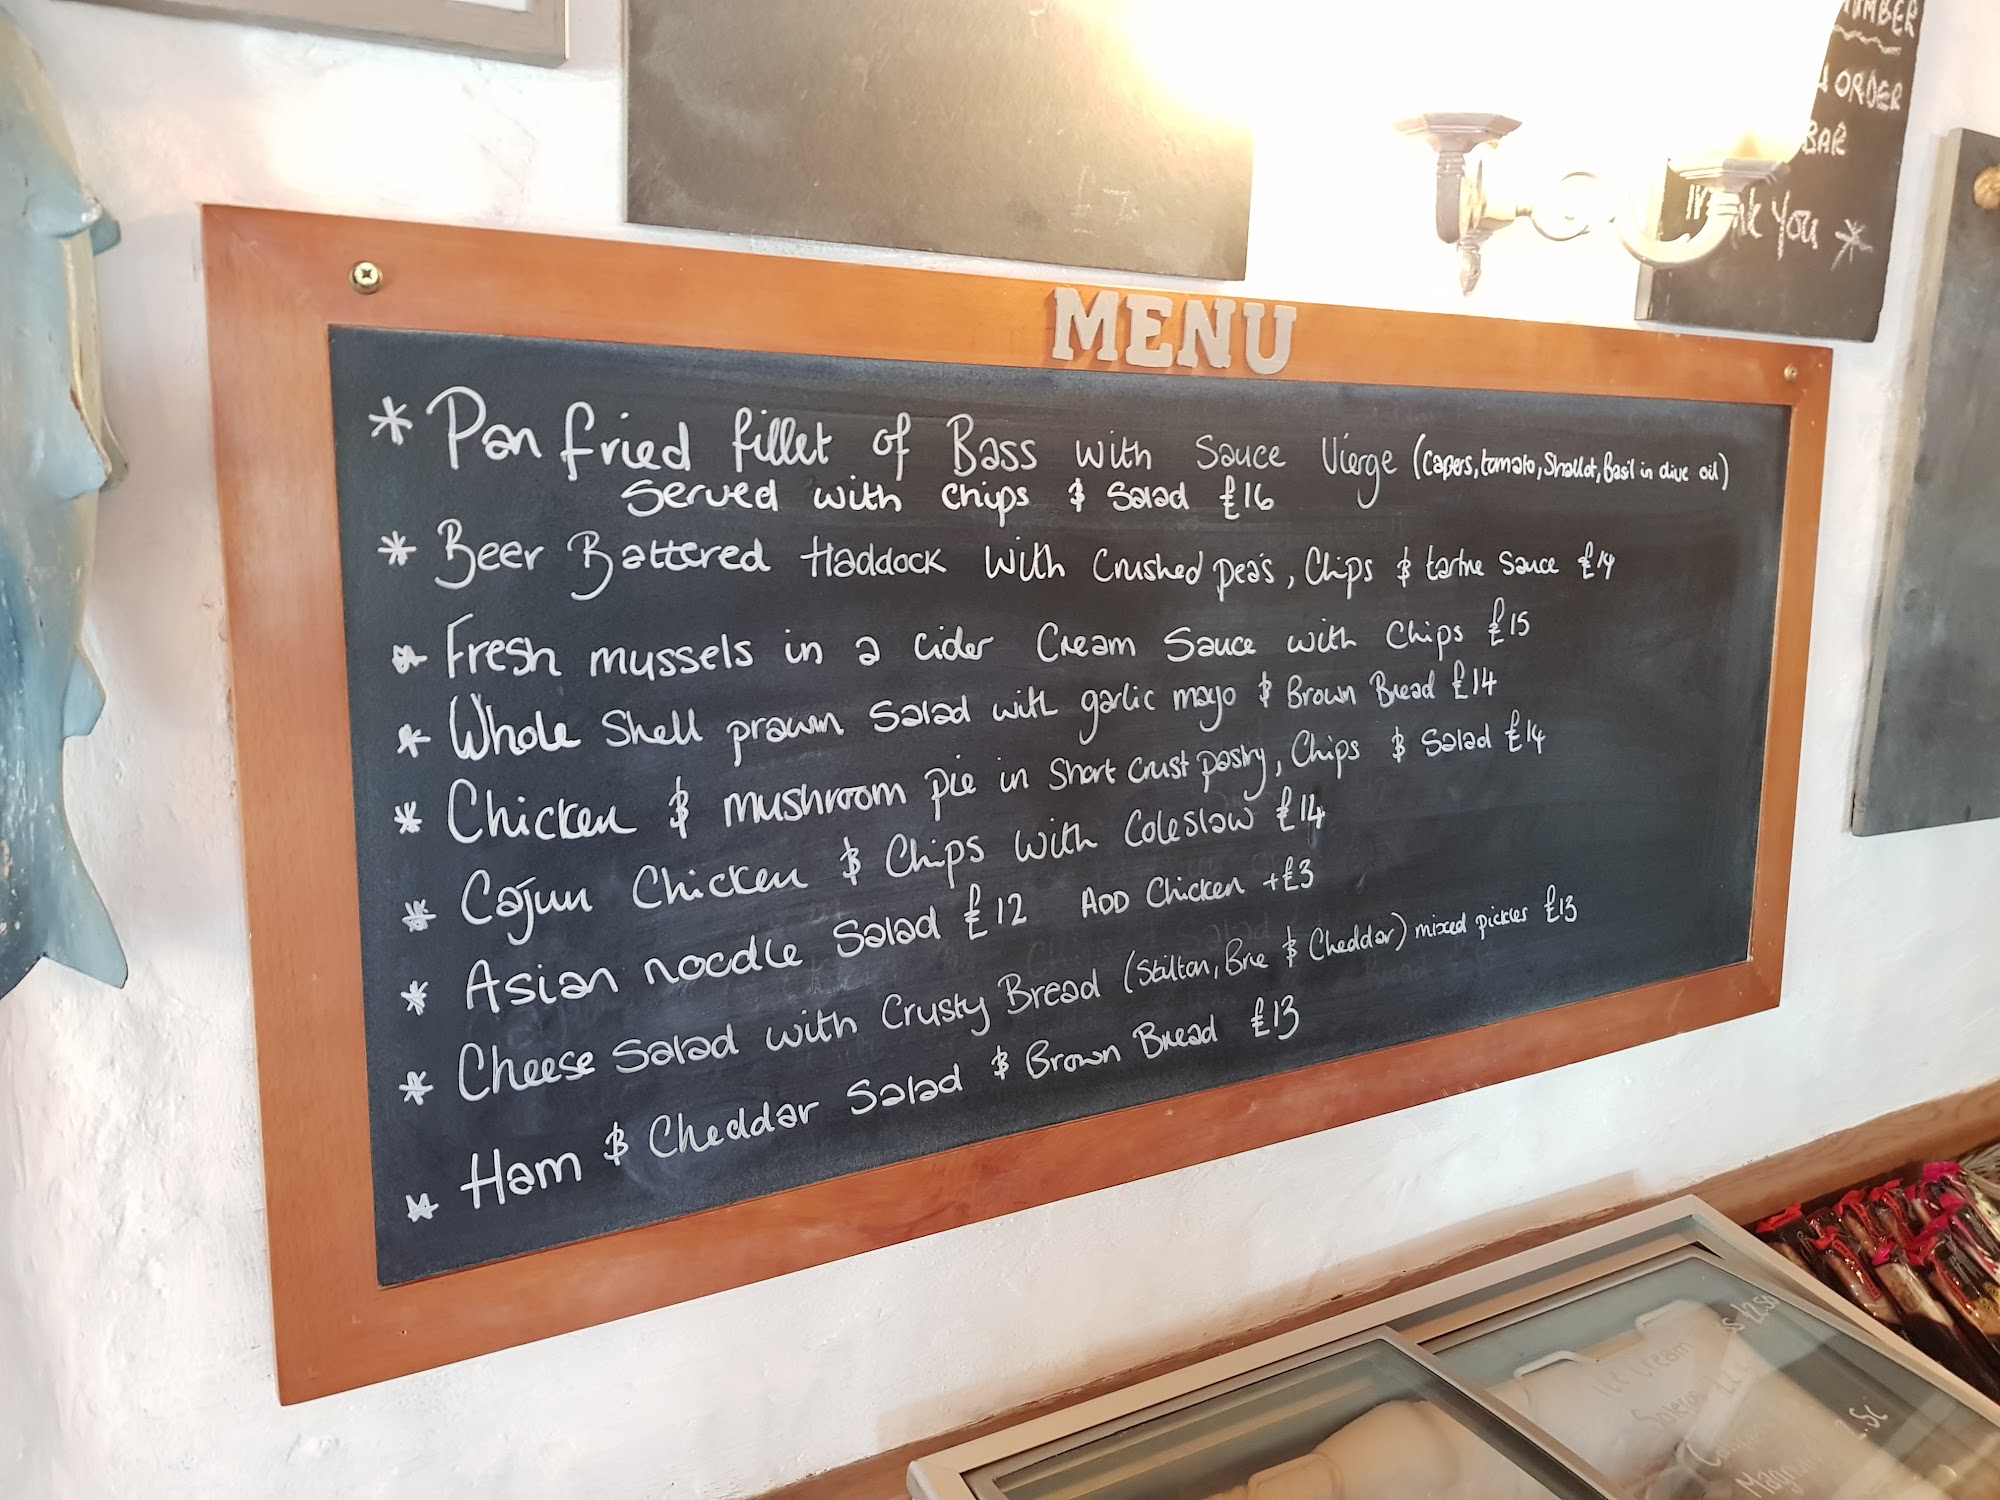 UMBER
ORDER
BAR
Thank You *
MENU
* Pan fried fillet of Bass with Sauce Vierge (capers, tomato, Shallot, Basil in olive oil)
Served with chips & Salad £16
* Beer Battered Haddock with Crushed peas, Chips & tartre Sauce £14
* Fresh mussels in a cider Cream Sauce with Chips £15
* Whole Shell prawn Salad with garlic mayo & Brown Bread £14
* Chicken & mushroom pie in Short Crust pastry, Chips & Salad £14
* Cajun Chicken & Chips with Coleslaw £14
* Asian noodle Salad £12 ADD Chicken +£3
* Cheese Salad with Crusty Bread (Stilton, Brie & Cheddar) mixed pickles £13
* Ham & Cheddar Salad & Brown Bread £13
£2.50
Ice Cream
Solero